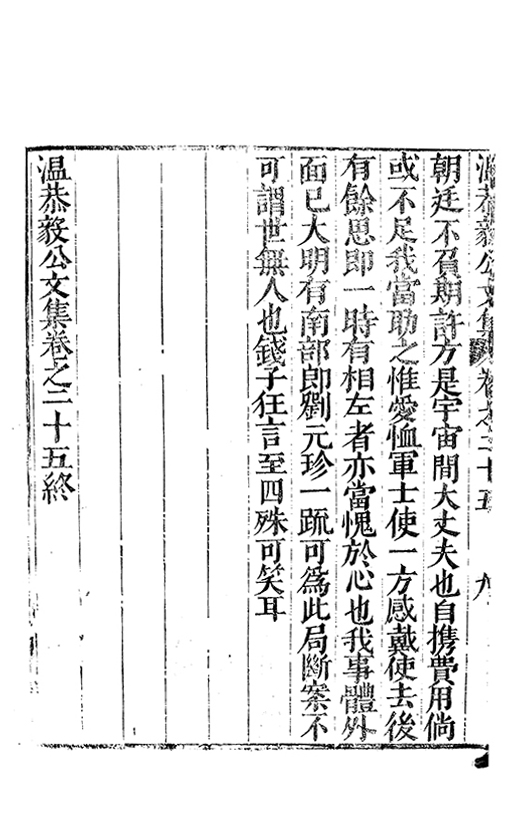 溫恭毅公文集卷之二十五 九
朝廷不負期許方是宇宙間大丈夫也自携費用倘
或不足我當助之惟愛恤軍士使一方感戴使去後
有餘思即一時有相左者亦當愧於心也我事體外
面已大明有南部郎劉元珍一疏可為此局斷案不
可謂世無人也錢子狂言至四殊可笑耳
溫恭毅公文集卷之二十五終